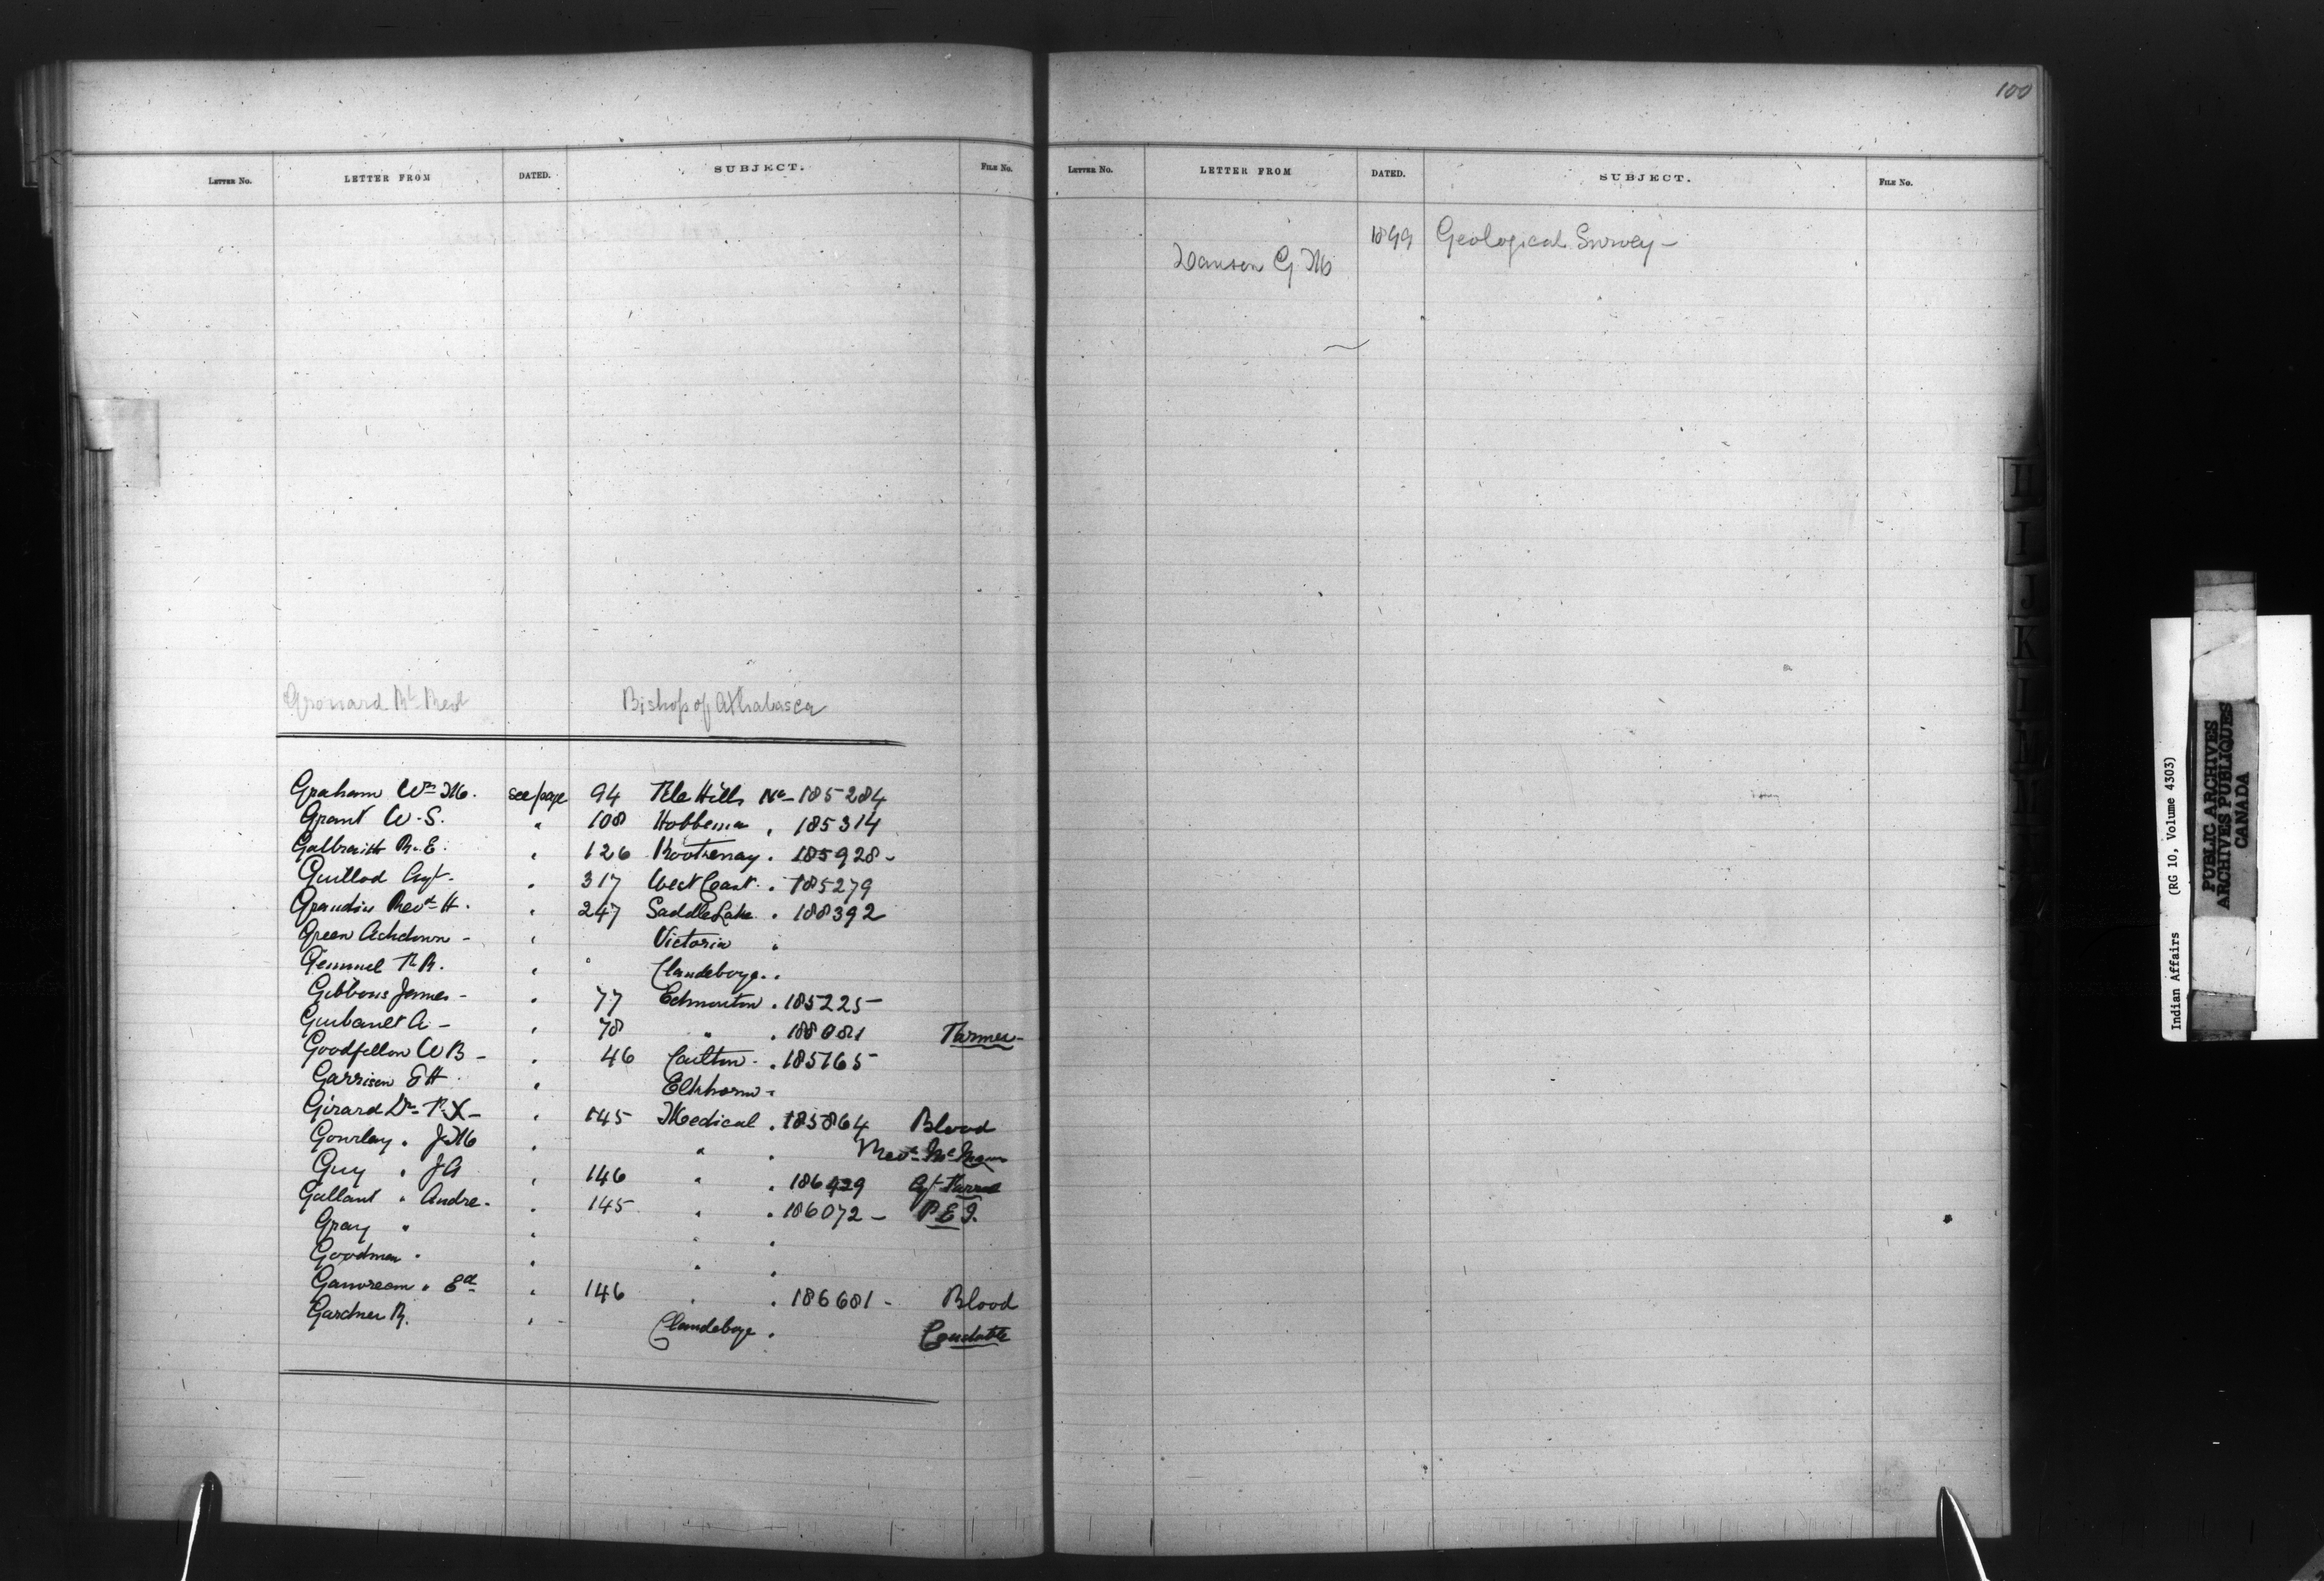 LETTER No. LETTER FROM DATED. SUBJECT. FILE No.
Grouard Rt Revd Bishop of Athabasca
Graham Wm M. see page 94 File Hills No 185284
Grant W. S. " 108 Hobbema " 185314
Galbraith R. E. " 126 Kootenay " 185928 -
Guillod Agt. " 317 West Coast " 185279
Grandin Revd H. " 247 Saddle Lake " 188392
Green Ashdown - " Victoria "
Gemmel R. " " Clandeboye "
Gibbons James - " 77 Edmonton . 185225
A - " 78 " . 188081 Farmer -
Goodfellow W B - " 46 Carlton . 185165
Garrison " Elkhorn -
Girard Dr F. X - " 145 Medical . 185864 Blood
Gourlay " J M " " .
Guy " J A " 146 " . 186429 Agt
Gallant " Andre - " 145 " . 186072 - P E I.
Gray " " " "
Goodman " " " "
" Ed " 146 " . 186681 - Blood
Gardner R. " - Clandeboye .
100
LETTER No. LETTER FROM DATED. SUBJECT. FILE No.
1899 Geological Survey -
Dawson G M
I
J
K
L
M
Indian Affairs (RG 10, Volume 4303)
PUBLIC ARCHIVES
ARCHIVES PUBLIQUES
CANADA